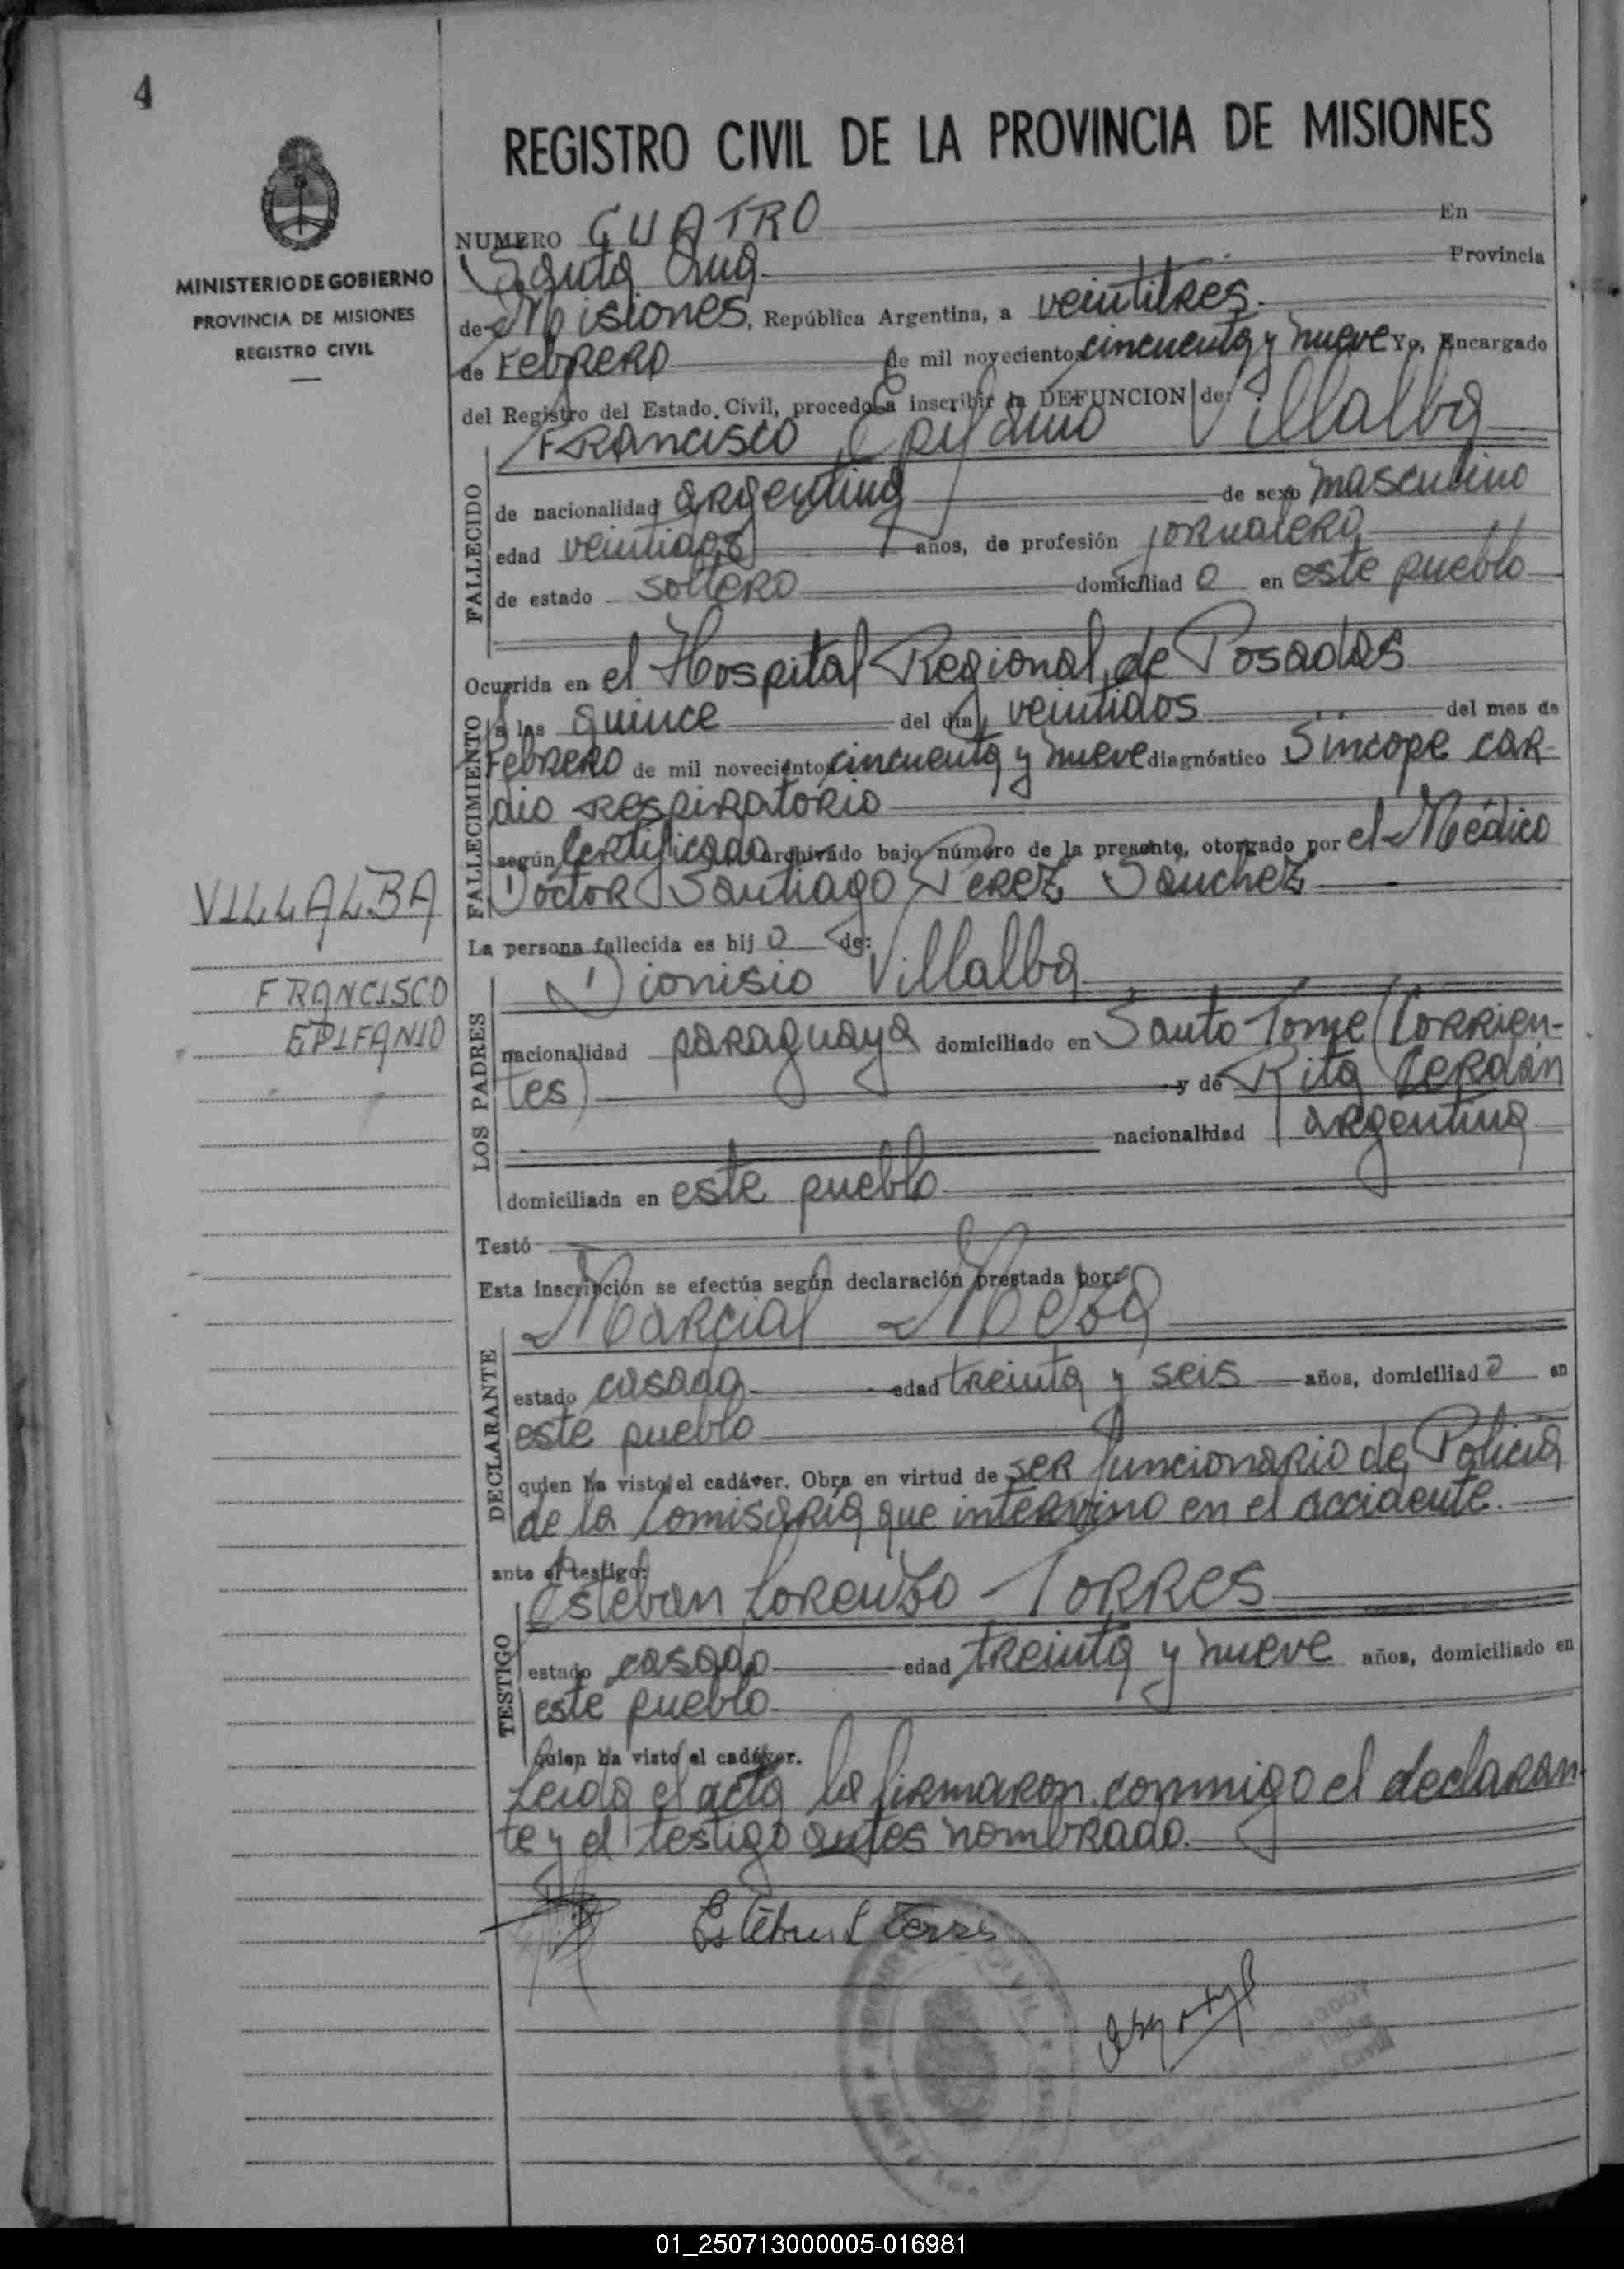 4
REGISTRO CIVIL DE LA PROVINCIA DE MISIONES
MINISTERIO DE GOBIERNO
PROVINCIA DE MISIONES
REGISTRO CIVIL
NUMERO CUATRO En
Santa Ana Provincia
de Misiones, República Argentina, a veintitres
de Febrero de mil novecientos cincuenta y nueve Yo, Encargado
del Registro del Estado Civil, procedo a inscribir la DEFUNCION de:
Francisco Epifanio Villalba
FALLECIDO
de nacionalidad argentina de sexo masculino
edad veintidos años, de profesión jornalero
de estado soltero domiciliad o en este pueblo
Ocurrida en el Hospital Regional de Posadas
FALLECIMIENTO
a las quince del día veintidos del mes de
Febrero de mil novecientos cincuenta y nueve diagnóstico Sincope car-
dio respiratorio
según certificado archivado bajo número de la presente, otorgado por el Médico
Doctor Santiago Perez Sanchez
VILLALBA
FRANCISCO
EPIFANIO
La persona fallecida es hij o de:
Dionisio Villalba
LOS PADRES
nacionalidad paraguaya domiciliado en Santo Tome (Corrien-
tes) y de Rita Cerdán
nacionalidad argentina
domiciliada en este pueblo
Testó
Esta inscripción se efectúa según declaración prestada por:
Marcial Meza
DECLARANTE
estado casado edad treinta y seis años, domiciliad o en
este pueblo
quien ha visto el cadáver. Obra en virtud de ser funcionario de Policia
de la Comisaria que intervino en el accidente.
ante el testigo:
Esteban Lorenzo Torres
TESTIGO
estado casado edad treinta y nueve años, domiciliado en
este pueblo
quien ha visto el cadáver.
Leida el acta la firmaron conmigo el declaran-
te y el testigo antes nombrado.
Esteban L Torres
01_250713000005-016981